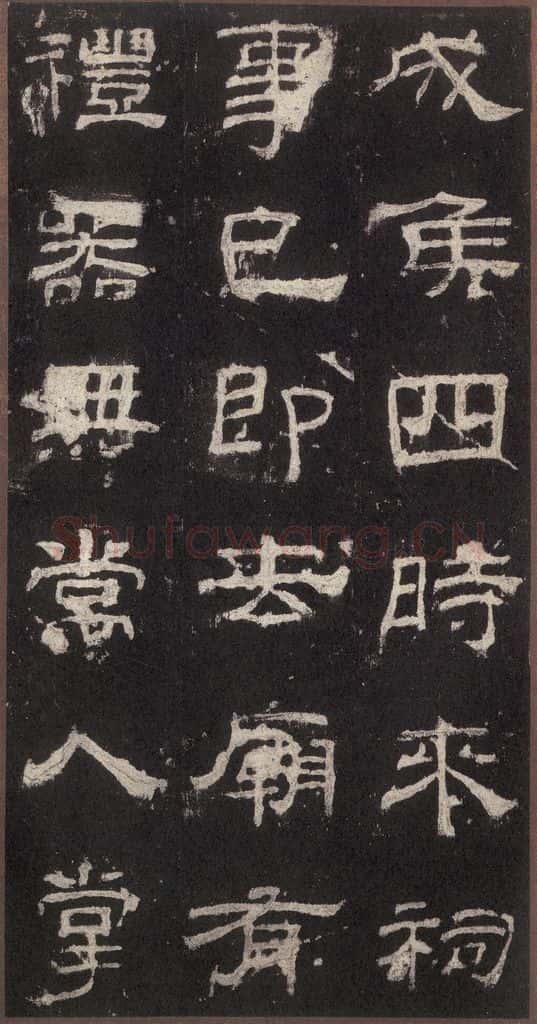 成侯四時來祠
事已即去廟有
禮器無常人掌
Shufawang.CN